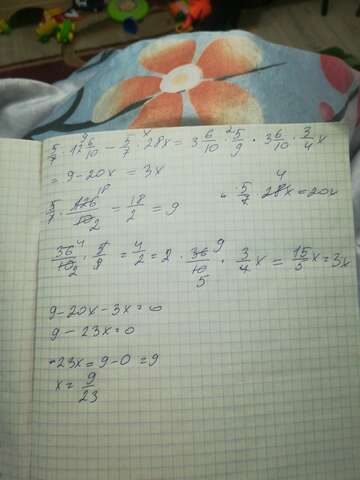 5/7 · 12 6/10 - 5/7 · 28x = 3 6/10 · 5/9 · 3 6/10 · 3/4 x
= 9 - 20x = 3x
5/7 · 126/10 = 18/2 = 9
5/7 · 28x = 20x
36/10 · 5/9 = 4/2 = 2 · 36/10 · 3/4 x = 15/5 x = 3x
9 - 20x - 3x = 0
9 - 23x = 0
-23x = 9 - 0 = 9
x = 9/23